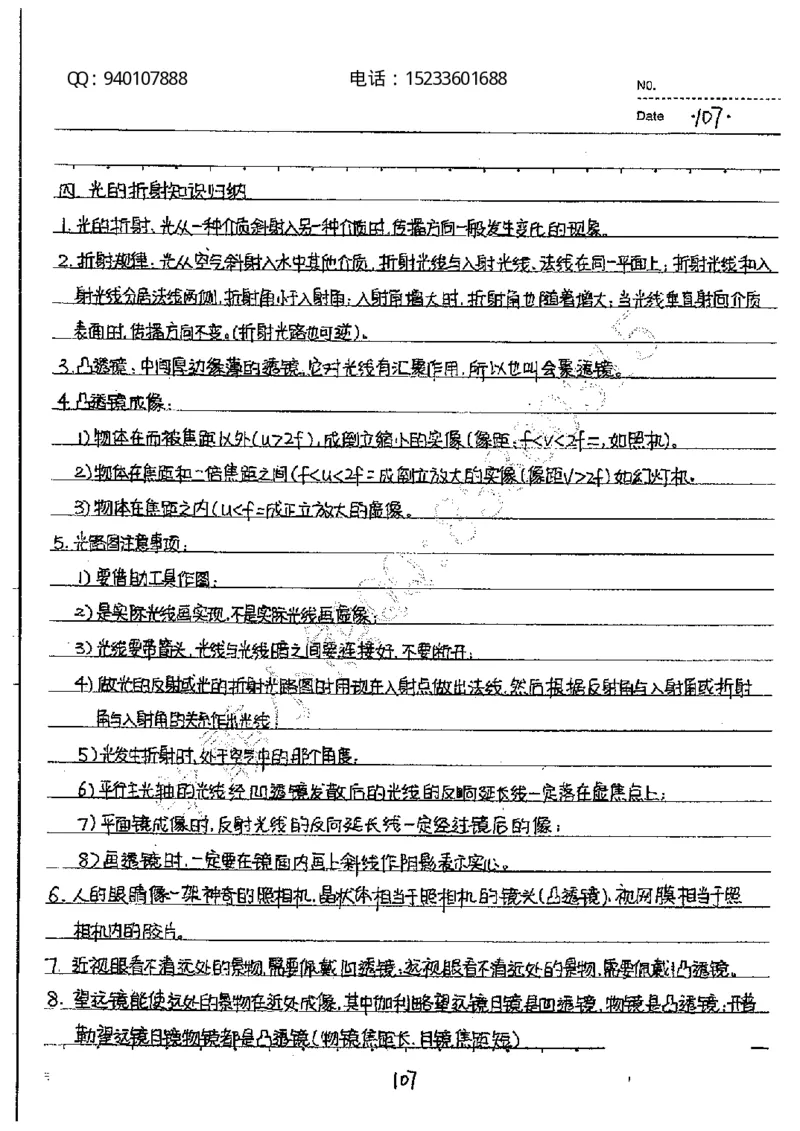 QQ：940107888 电话：15233601688
NO.
Date ·107·
四. 光的折射知识归纳
1. 光的折射、光从一种介质斜射入另一种介质时,传播方向一般发生变化的现象。
2. 折射规律：光从空气斜射入水中其他介质,折射光线与入射光线、法线在同一平面上；折射光线和入
射光线分居法线两侧,折射角小于入射角；入射角增大时,折射角也随着增大；当光线垂直射向介质
表面时,传播方向不变。(折射光路也可逆)。
3. 凸透镜：中间厚边缘薄的透镜,它对光线有汇聚作用,所以也叫会聚透镜。
4. 凸透镜成像：
1)物体在而被焦距以外(u>2f),成倒立缩小的实像(像距：f<v<2f=,如照机)。
2)物体在焦距和一倍焦距之间(f<u<2f=成倒立放大的实像(像距V>2f)如幻灯机.
3)物体在焦距之内(u<f=成正立放大的虚像。
5. 光路图注意事项：
1)要借助工具作图；
2)是实际光线画实现,不是实际光线画虚像；
3)光线要带箭头,光线与光线暗之间要连接好,不要断开；
4)做光的反射或光的折射光路图时用现在入射点做出法线,然后根据反射角与入射角或折射
角与入射角的关系作出光线；
5)光发生折射时,处于空气中的那个角度；
6)平行主光轴的光线经凹透镜发散后的光线的反响延长线一定落在虚焦点上；
7)平面镜成像时,反射光线的反向延长线一定经过镜后的像；
8)画透镜时,一定要在镜面内画上斜线作阴影表示实心。
6. 人的眼睛像一架神奇的照相机,晶状体相当于照相机的镜头(凸透镜),视网膜相当于照
相机内的胶片。
7. 近视眼看不清远处的景物,需要佩戴凹透镜；远视眼看不清近处的景物,需要佩戴凸透镜。
8. 望远镜能使远处的景物在近处成像,其中伽利略望远镜目镜是凹透镜,物镜是凸透镜；开普
勒望远镜目镜物镜都是凸透镜(物镜焦距长,目镜焦距短)
107